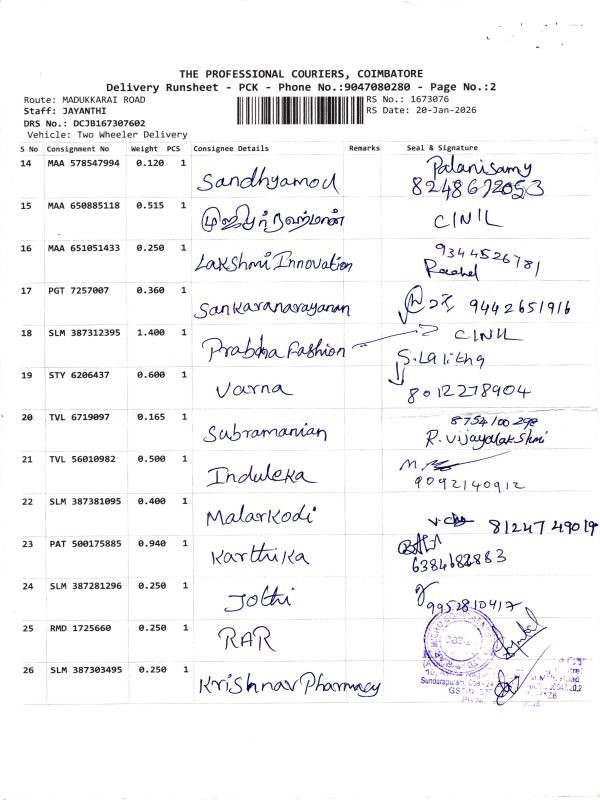 THE PROFESSIONAL COURIERS, COIMBATORE
Delivery Runsheet - PCK - Phone No.:9047080280 - Page No.:2
Route: MADUKKARAI ROAD RS No.: 1673076
Staff: JAYANTHI RS Date: 20-Jan-2026
DRS No.: DCJB167307602
Vehicle: Two Wheeler Delivery
S No Consignment No Weight PCS Consignee Details Remarks Seal & Signature
14 MAA 578547994 0.120 1 Sandhyamol Palanisamy
8248672053
15 MAA 650885118 0.515 1 CINIL
16 MAA 651051433 0.250 1 Lakshmi Innovation 9344526781
17 PGT 7257007 0.360 1 Sankaranarayanan 9442651916
18 SLM 387312395 1.400 1 Prabha Fashion CINIL
S.Lalitha
19 STY 6206437 0.600 1 Varna 8012278904
20 TVL 6719097 0.165 1 Subramanian 8754100298
R. Vijayalakshmi
21 TVL 56010982 0.500 1 Induleka
9092140912
22 SLM 387381095 0.400 1 Malarkodi 8124749019
23 PAT 500175885 0.940 1 Karthika
6384682883
24 SLM 387281296 0.250 1 Jothi 9952810417
25 RMD 1725660 0.250 1 RAR
26 SLM 387303495 0.250 1 Krishnav Pharmacy
Sundarapuram, Cbe - 24